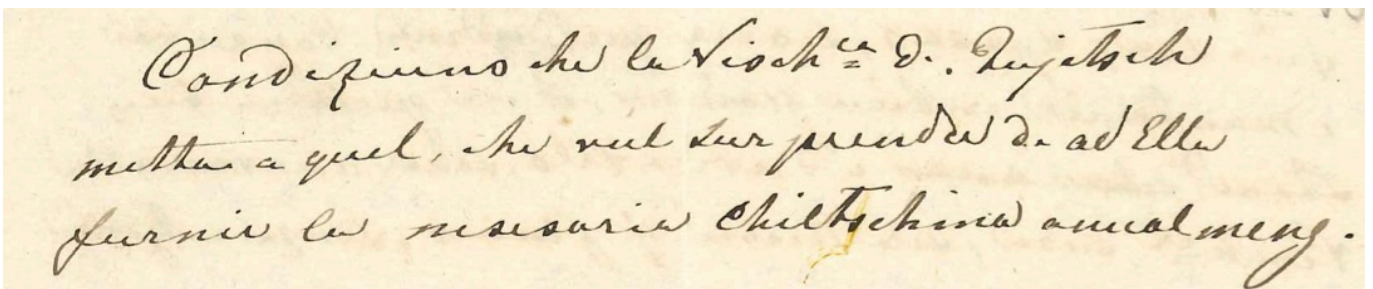 Condiziuns che la Visch^ca de Zujetsch
mettæ a quel, che vul surprender de ad Ella
furnir la nescsaria Chiltschina annualmeng.